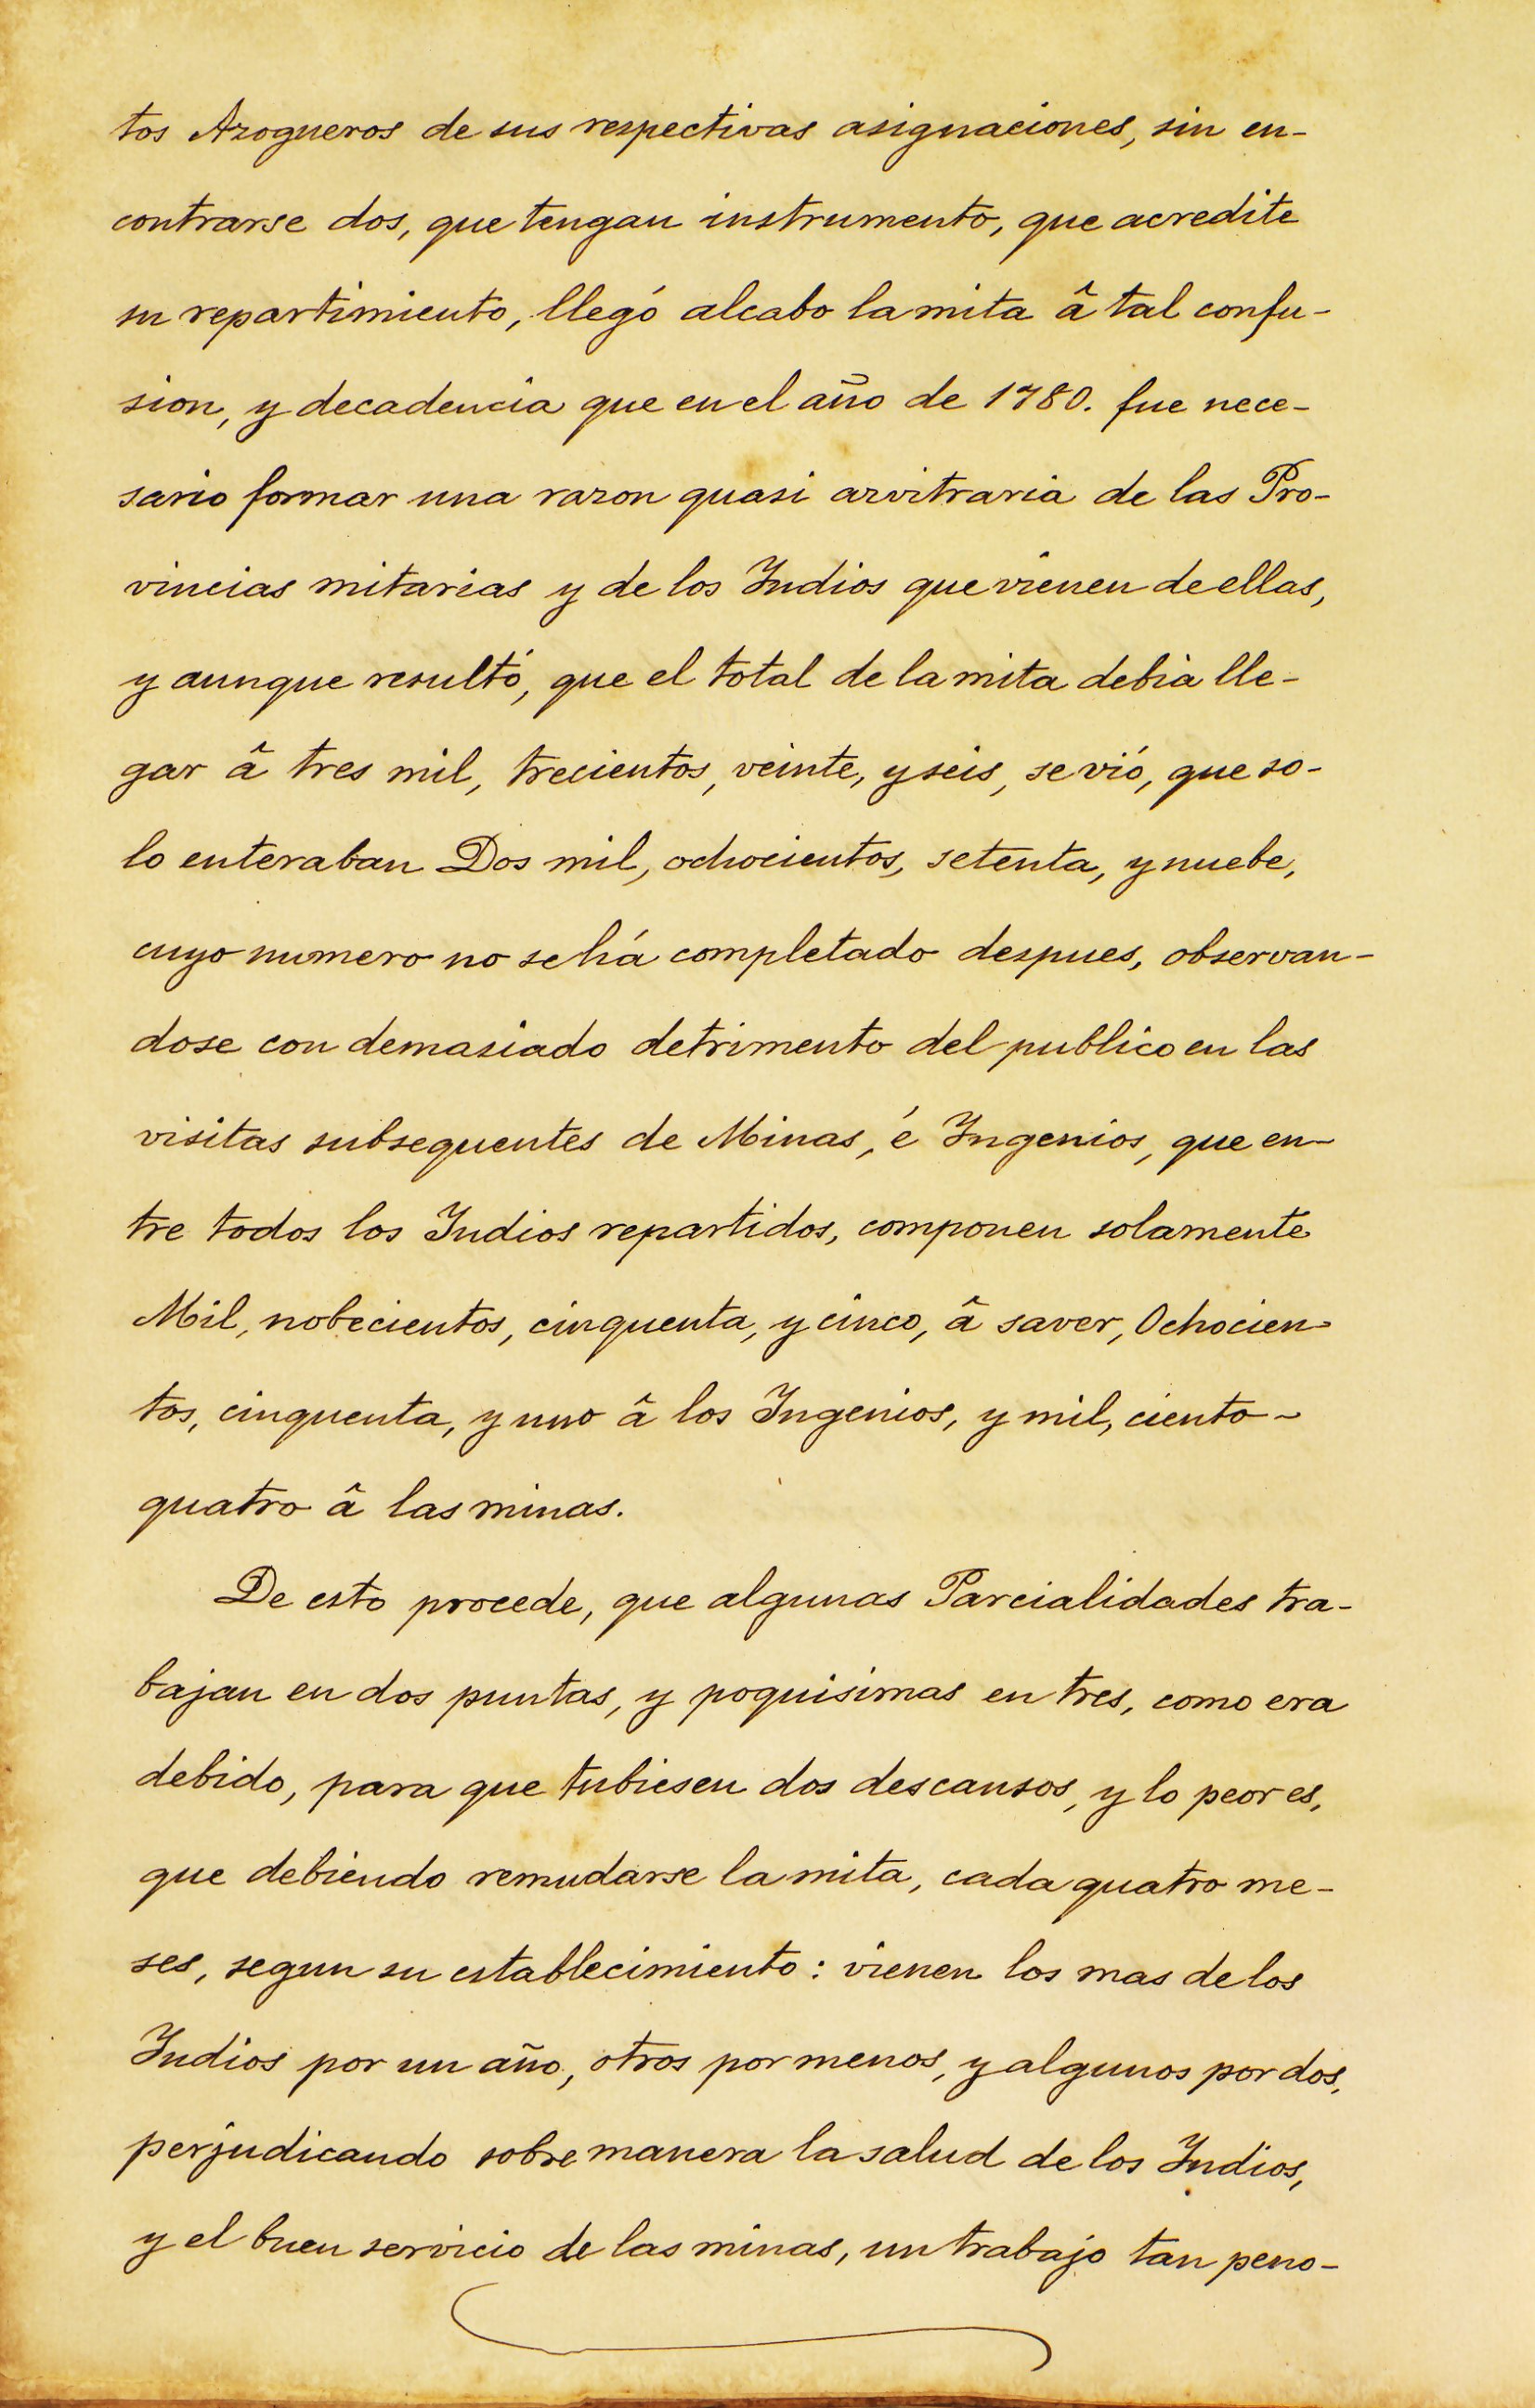 tos Azogueros de sus respectivas asignaciones, sin en-
contrarse dos, que tengan instrumento, que acredite
su repartimiento, llegó alcabo la mita â tal confu-
sion, y decadencia que en el año de 1780. fue nece-
sario formar una razon quasi arvitraria de las Pro-
vincias mitarias y de los Indios que vienen de ellas,
y aunque resultó, que el total de la mita debia lle-
gar â tres mil, trecientos, veinte, y seis, se vió, que so-
lo enteraban Dos mil, ochocientos, setenta, y nuebe,
cuyo numero no se há completado despues, observan-
dose con demasiado detrimento del publico en las
visitas subsequentes de Minas, é Ingenios, que en-
tre todos los Indios repartidos, componen solamente
Mil, nobecientos, cinquenta, y cinco, â saver, Ochocien-
tos, cinquenta, y uno â los Ingenios, y mil, ciento-
quatro â las minas.
De esto procede, que algunas Parcialidades tra-
bajan en dos puntas, y poquisimas en tres, como era
debido, para que tubiesen dos descansos, y lo peor es,
que debiendo remudarse la mita, cada quatro me-
ses, segun su establecimiento: vienen los mas de los
Indios por un año, otros por menos, y algunos por dos,
perjudicando sobre manera la salud de los Indios,
y el buen servicio de las minas, un trabajo tan peno-